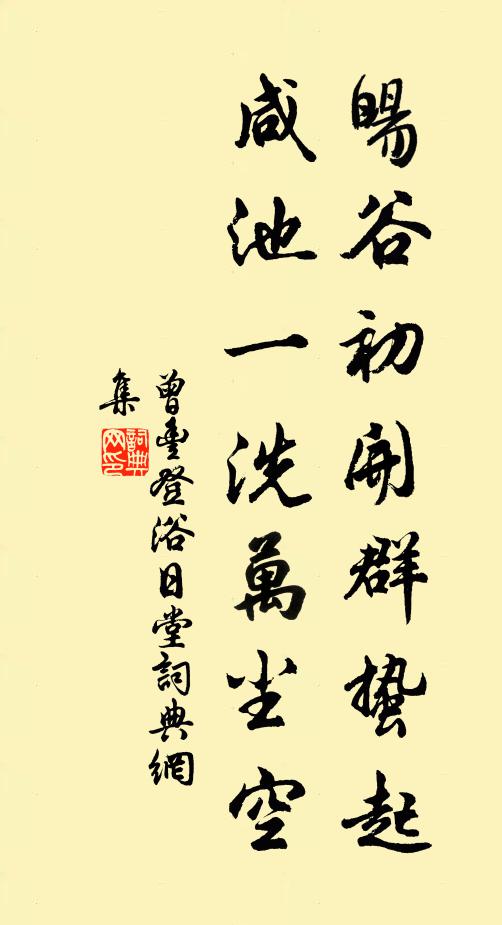 暘谷初開群蟄起
咸池一洗萬尘空
曾豊登浴日堂詞典網
集
詞典
网印